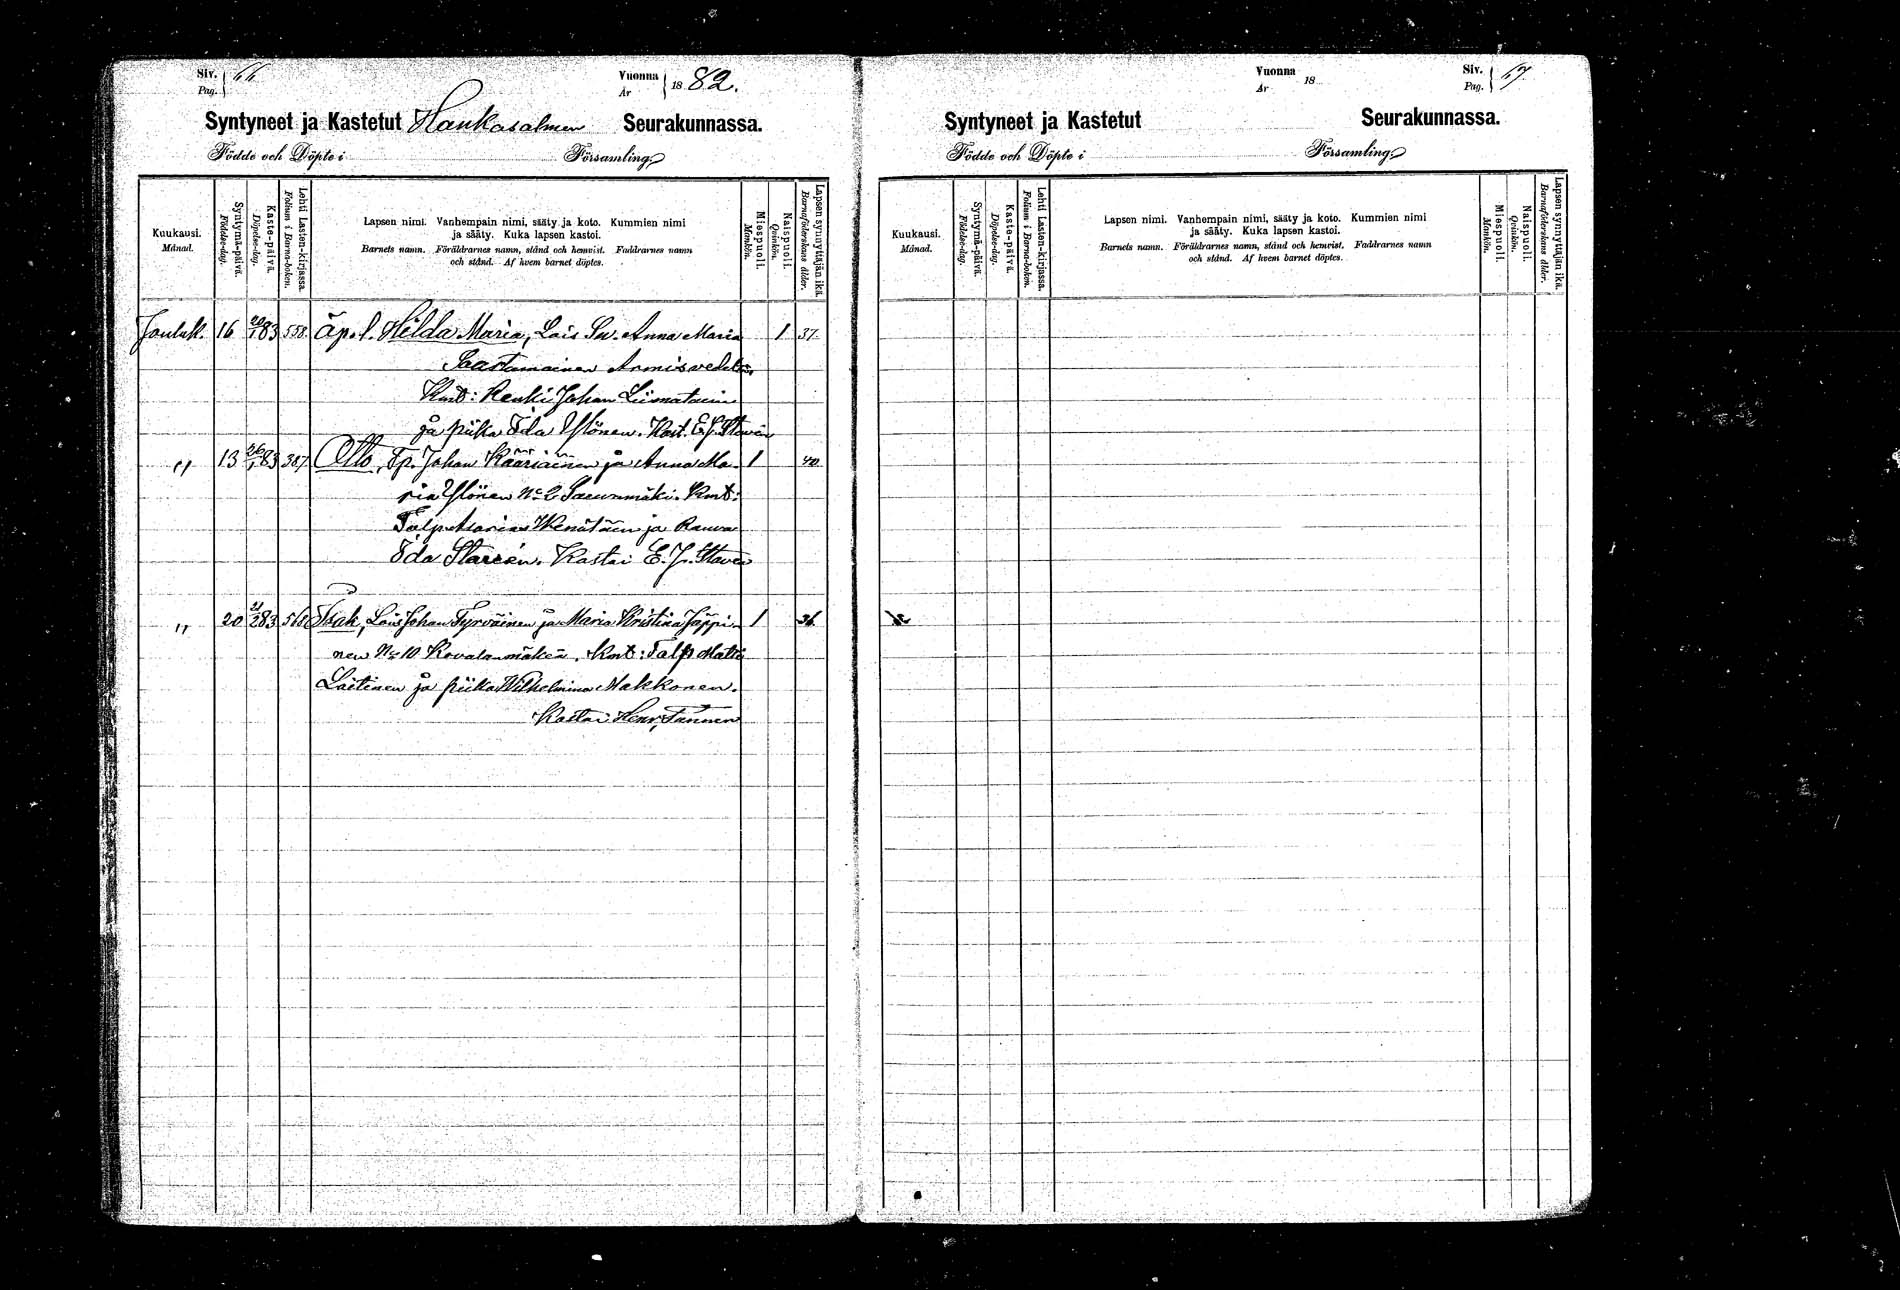 Siv. 66
Pag.
Vuonna 1882.
År
Syntyneet ja Kastetut Hankasalmen Seurakunnassa.
Födde och Döpte i Församling.
Kuukausi. Månad.
Syntymä-päivä. Födelse-dag.
Kaste-päivä. Döpelse-dag.
Lehti Lasten-kirjassa. Folium i Barna-boken.
Lapsen nimi. Vanhempain nimi, sääty ja koto. Kummien nimi
ja sääty. Kuka lapsen kastoi.
Barnets namn. Föräldrarnes namn, stånd och hemvist. Faddrarnes namn
och stånd. Af hvem barnet döptes.
Miespuoli. Mankön.
Naispuoli. Qvinkön.
Lapsen synnyttäjän ikä. Barnaföderskans ålder.
Jouluk. 16 20/1 83 558. Äp. l. Hilda Maria, Lois Sw. Anna Maria 1 37.
Saastamoinen Armisveden.
Kmt: Renki Johan Liimatain
ja piika Ida Ylönen. Kast. E. J. Stavén
" 13 26/1 83 387. Otto, Tp. Johan Kääriäinen ja Anna Ma- 1 40
ria Ylönen No 2 Sauvamäki. Kmt:
Talp. Asarias Wenäläin ja Rouva
Ida Stavén. Kastai E. J. Stavén
" 20 568 Isak, Lois Johan Tyrväinen ja Maria Kristina Jäppi- 1 36.
nen No 10 Kovalanmäkiä. Kmt: Talp Matti
Laitinen ja piika Wilhelmina Makkonen.
Kastai Henr. Tannen
Vuonna 18
År
Siv. 67.
Pag.
Syntyneet ja Kastetut Seurakunnassa.
Födde och Döpte i Församling.
Kuukausi. Månad.
Syntymä-päivä. Födelse-dag.
Kaste-päivä. Döpelse-dag.
Lehti Lasten-kirjassa. Folium i Barna-boken.
Lapsen nimi. Vanhempain nimi, sääty ja koto. Kummien nimi
ja sääty. Kuka lapsen kastoi.
Barnets namn. Föräldrarnes namn, stånd och hemvist. Faddrarnes namn
och stånd. Af hvem barnet döptes.
Miespuoli. Mankön.
Naispuoli. Qvinkön.
Lapsen synnyttäjän ikä. Barnaföderskans ålder.